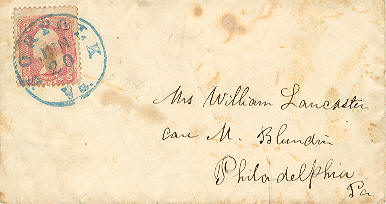 NORFOLK
VA.
20
3
Mrs William Lancaster
care M. Blundin
Philadelphia
Pa